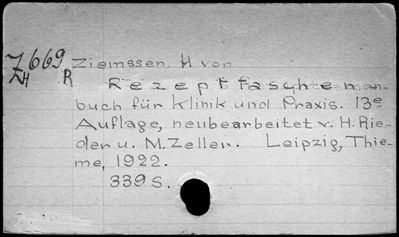 Z669 Ziemssen, H von
ZH R Rezepttaschenman-
buch für Klinik und Praxis. 13e
Auflage, neubearbeitet v. H. Rie-
der u. M. Zeller. Leipzig, Thie-
me, 1922.
339 S.